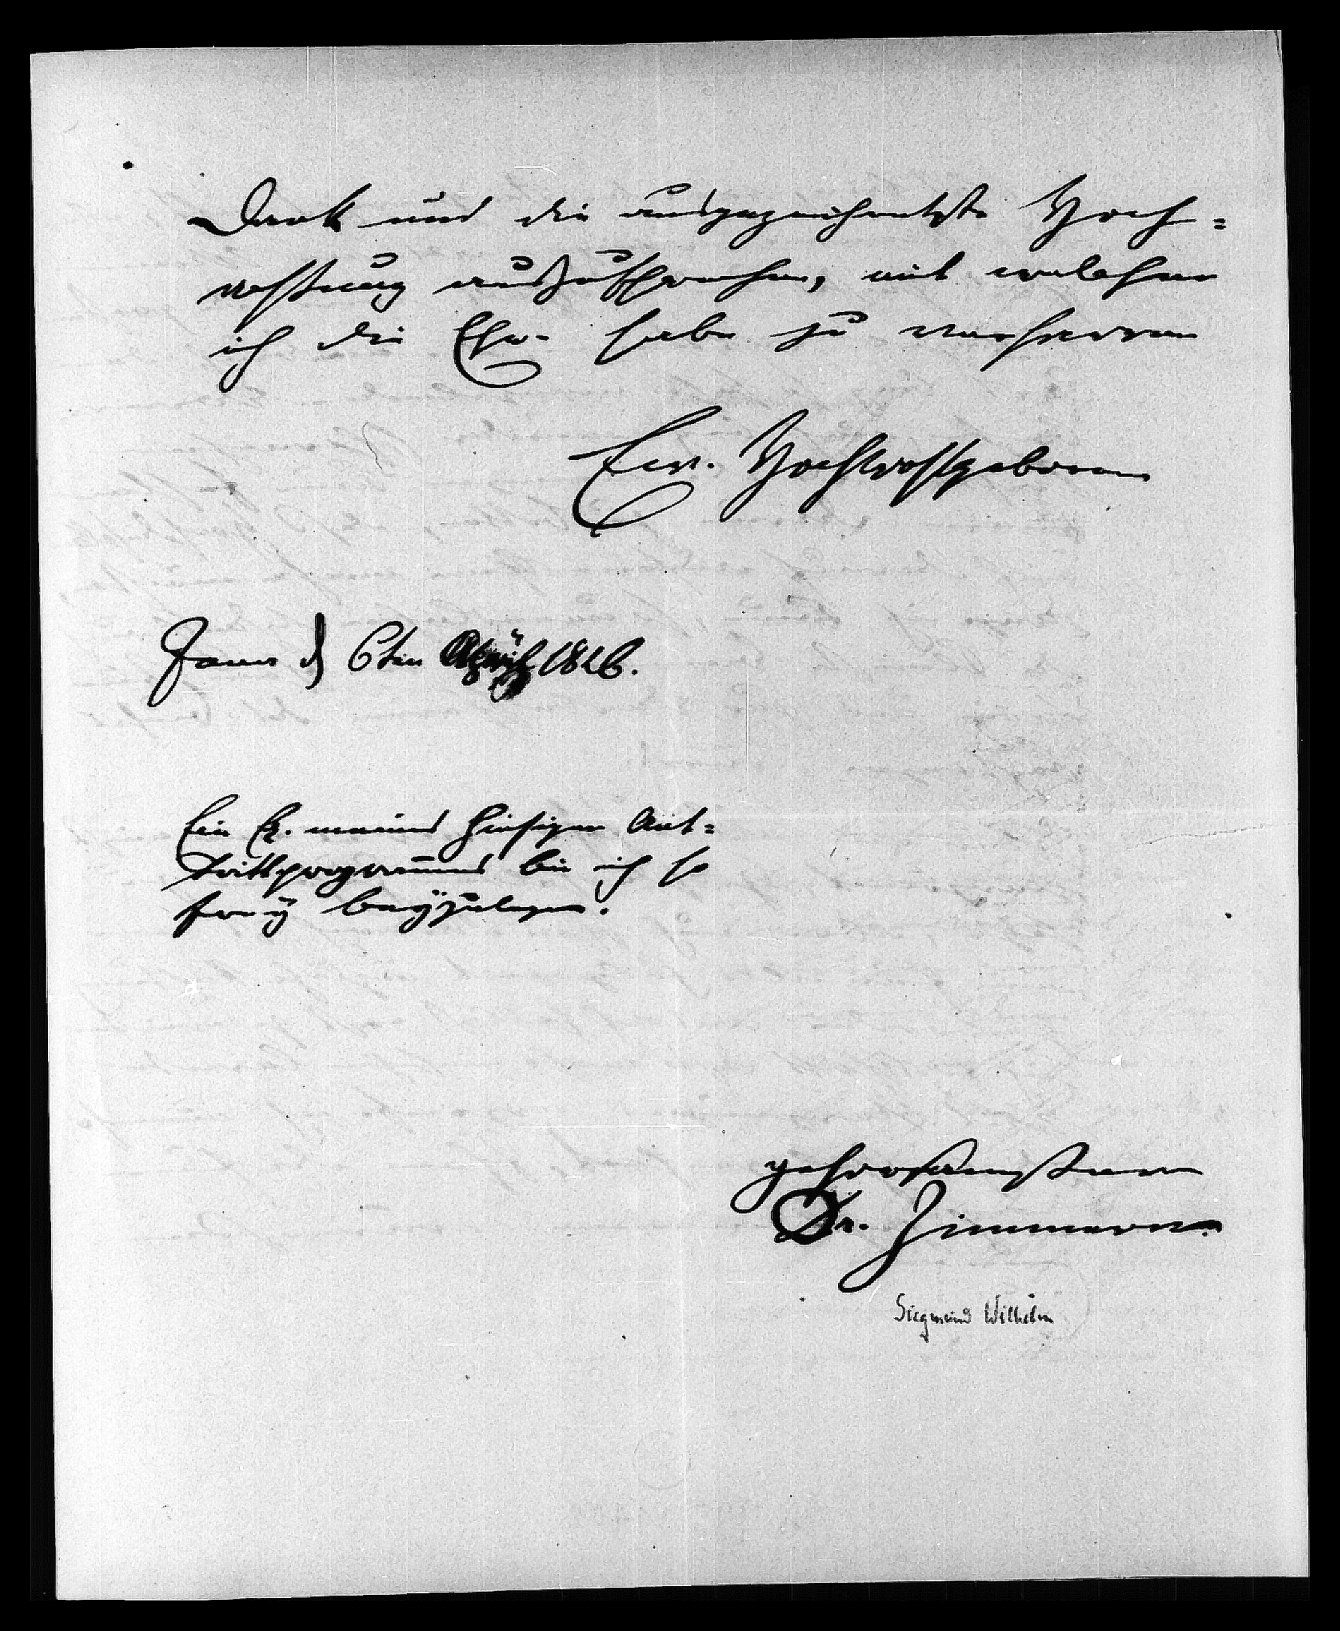 Dank und die ausgezeichnetste Hoch=
achtung auszusprechen, mit welcher
ich die Ehre habe zu verharren
Ew. Hochwohlgeboren
Jena d 6ten 1826.
Ein Ex. meines hiesigen Ant=
trittsprogramms bin ich so
frey beyzulegen.
gehorsamster
Dr. Zimmern.
Siegmund Wilhelm